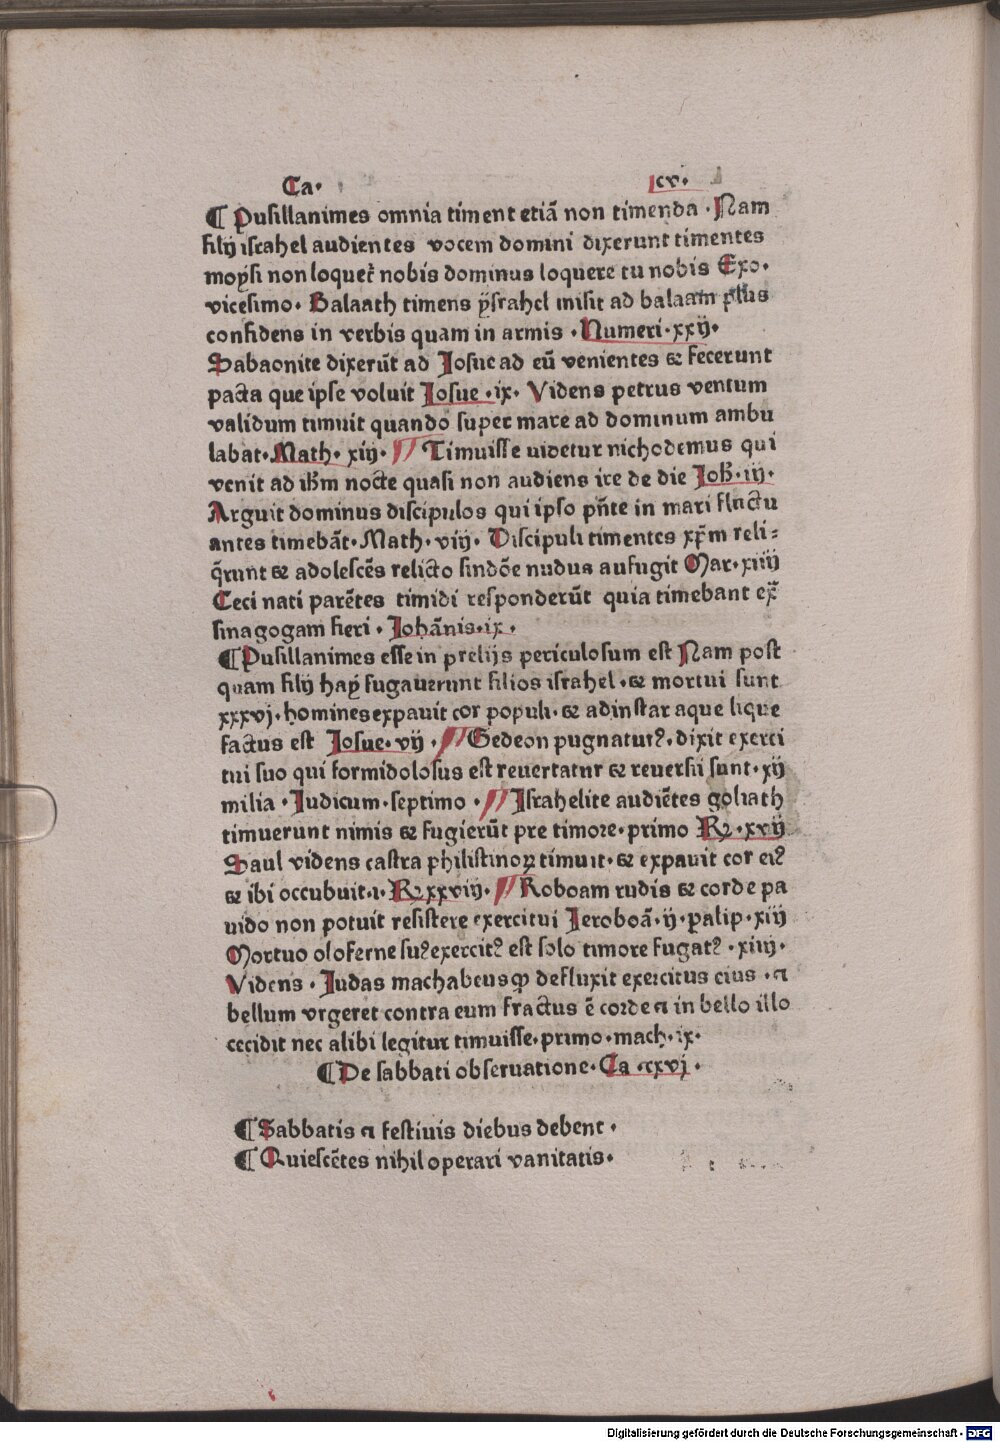 Ca· lcv·
¶ Pusillanimes omnia timent etiā non timenda · Nam
filij israhel audientes vocem domini dixerunt timentes
moysi non loquet̄ nobis dominus loquere tu nobis Exo·
vicesimo· Balaath timens ysrahel misit ad balaam plus
confidens in verbis quam in armis · Numeri · xxij·
Gabaonite dixerūt ad Josue ad eū venientes & fecerunt
pacta que ipse voluit Josue · ix· Videns petrus ventum
validum timuit quando super mare ad dominum ambu
labat· Math· xiij· Timuisse uidetur nichodemus qui
venit ad ihm̄ nocte quasi non audiens ire de die Joh̄· iij·
Arguit dominus discipulos qui ipso pn̄te in mari fluctu
antes timebāt· Math· viij· Discipuli timentes xp̄m reli⸗
q̄runt & adolescēs relicto sindōe nudus aufugit Mar· xiiij
Ceci nati parētes timidi responderūt quia timebant ex̄
sinagogam fieri · Johānis· ix ·
¶ Pusillanimes esse in prelijs periculosum est Nam post
quam filij hay fugauerunt filios israhel · & mortui sunt
xxxvj· homines expauit cor populi· & ad instar aque lique
factus est Josue· vij · Gedeon pugnaturꝰ· dixit exerci
tui suo qui formidolosus est reuertatur & reuersi sunt· xij
milia · Judicum· septimo · Israhelite audiētes goliath
timuerunt nimis & fugierūt pre timore· primo Rꝝ· xvij
Saul videns castra philistinoꝝ timuit· & expauit cor eiꝰ
& ibi occubuit· ı· Rꝝ xxviij· Roboam rudis & corde pa
uido non potuit resistere exercitui Jeroboā· ij· palip· xiij
Mortuo oloferne suꝰ exercitꝰ est solo timore fugatꝰ · xiiij·
Videns · Judas machabeus ꝙ defluxit exercitus eius · ⁊
bellum vrgeret contra eum fractus ē corde ⁊ in bello illo
cecidit nec alibi legitur timuisse· primo· mach· ix·
¶ De sabbati obseruatione· Ca · cxvj ·
¶ Sabbatis ⁊ festiuis diebus debent ·
¶ Quiescētes nihil operari vanitatis·
Digitalisierung gefördert durch die Deutsche Forschungsgemeinschaft - DFG